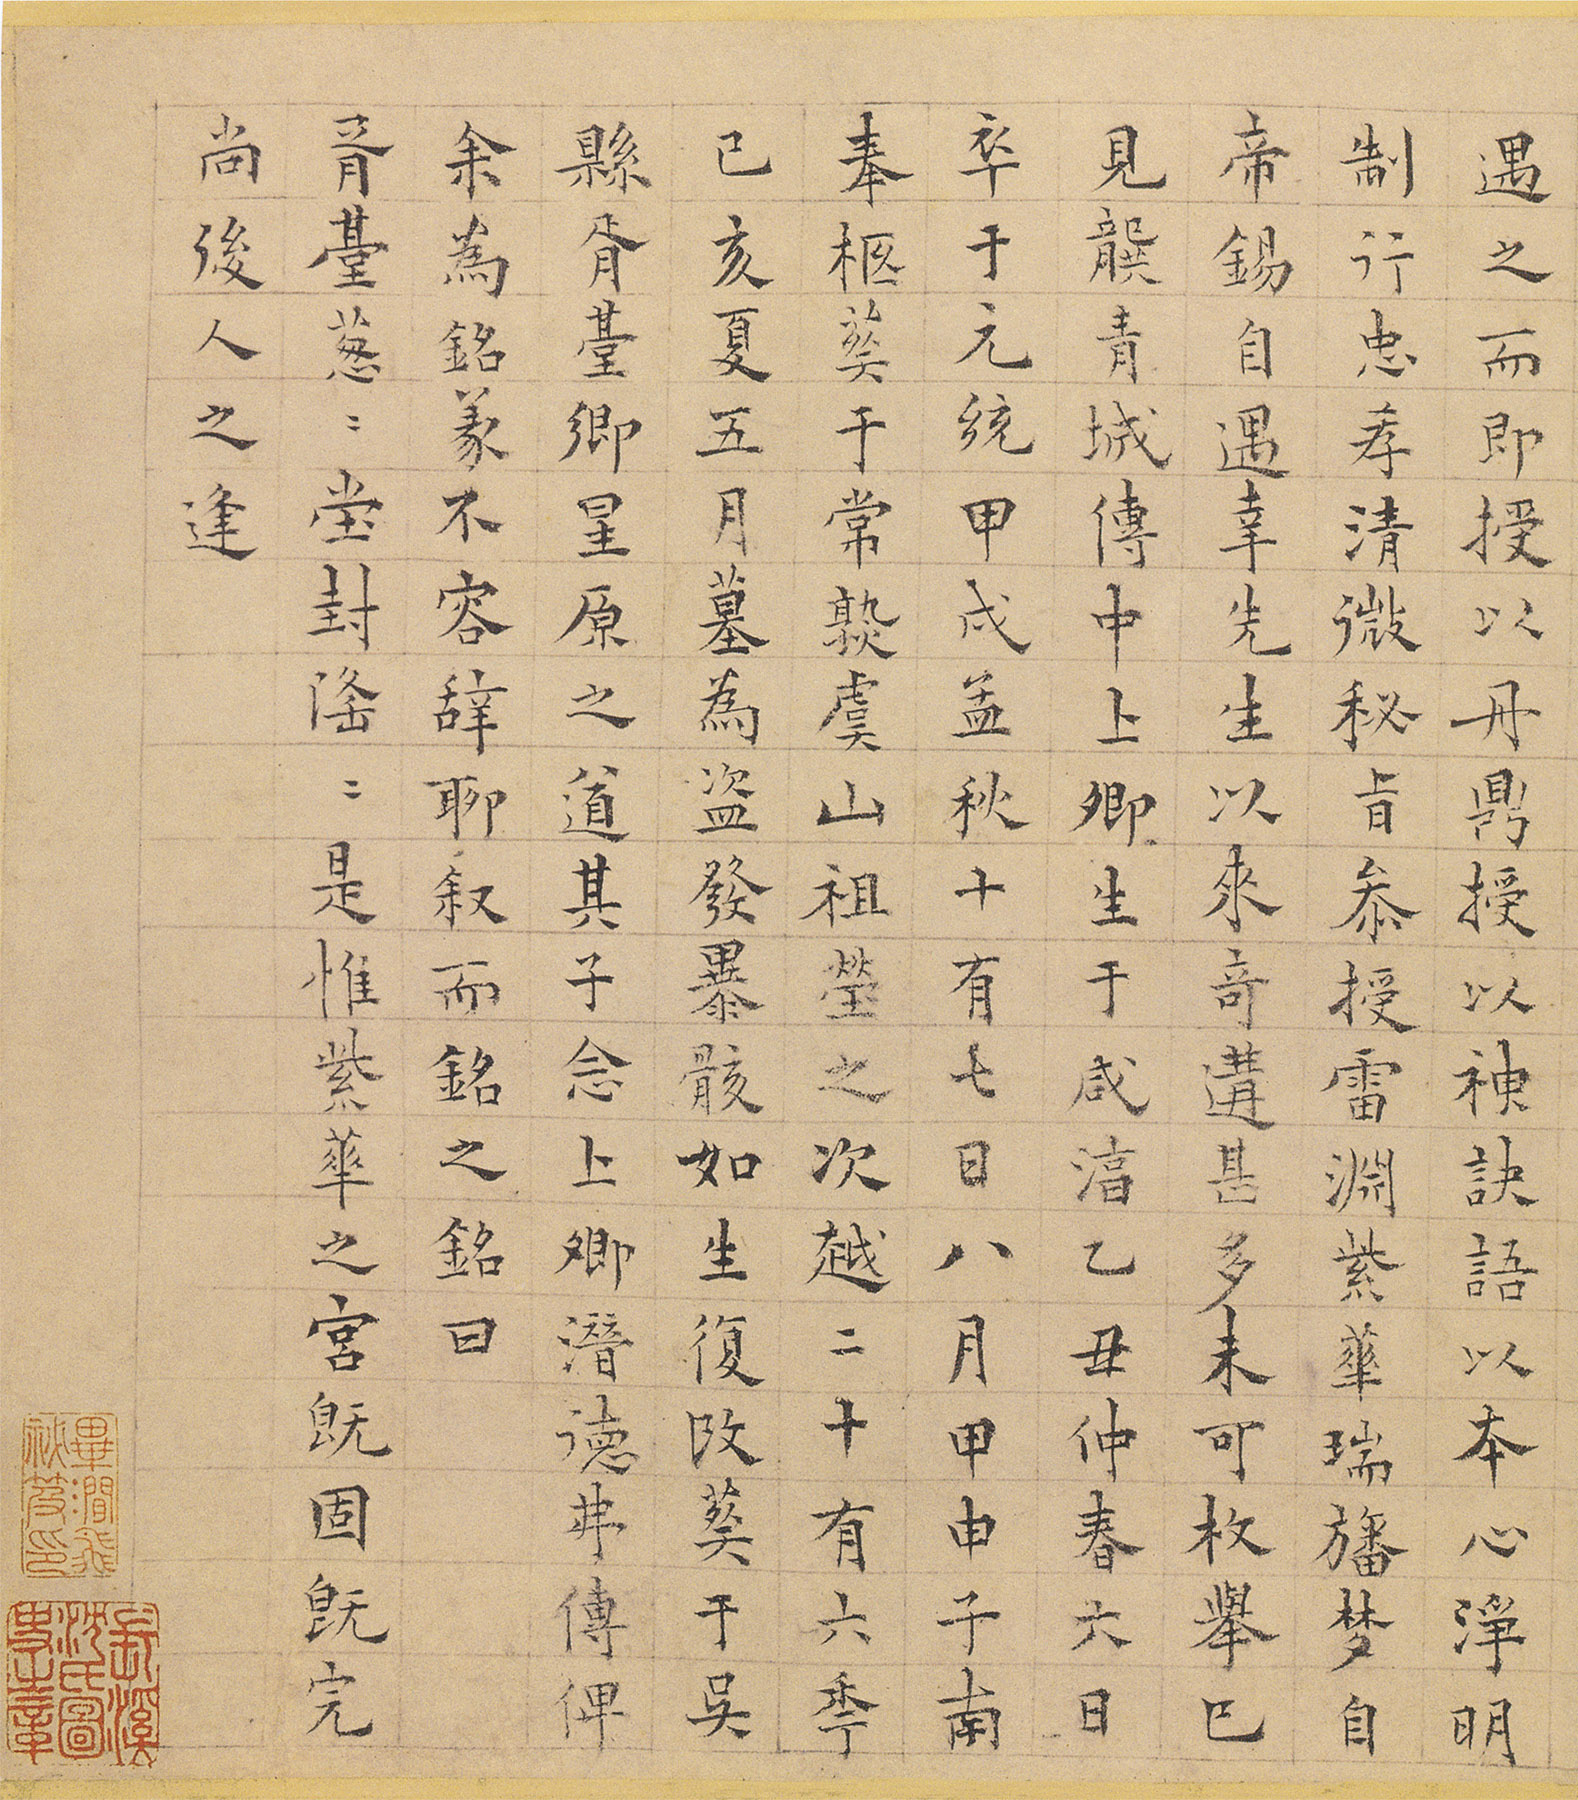 遇之而即授以丹鼎授以神訣語以本心淨明
制行忠孝清微秘旨叅授雷淵紫華瑞旛梦自
帝錫自遇幸先生以來奇遘甚多未可枚舉已
見龔青城傳中上卿生于咸淳乙丑仲春六日
卒于元統甲戌孟秋十有七日八月甲申子南
奉柩葬于常熟虞山祖塋之次越二十有六季
已亥夏五月墓為盜發暴骸如生復改葬于吳
縣胥臺鄉星原之道其子念上卿潛德弗傳俾
余為銘義不容辞聊叙而銘之銘曰
胥臺葱〻堂封隆〻是惟紫華之宮既固既完
尚後人之逢
畢澗飛秘笈印
吳溪沈氏圖史之章